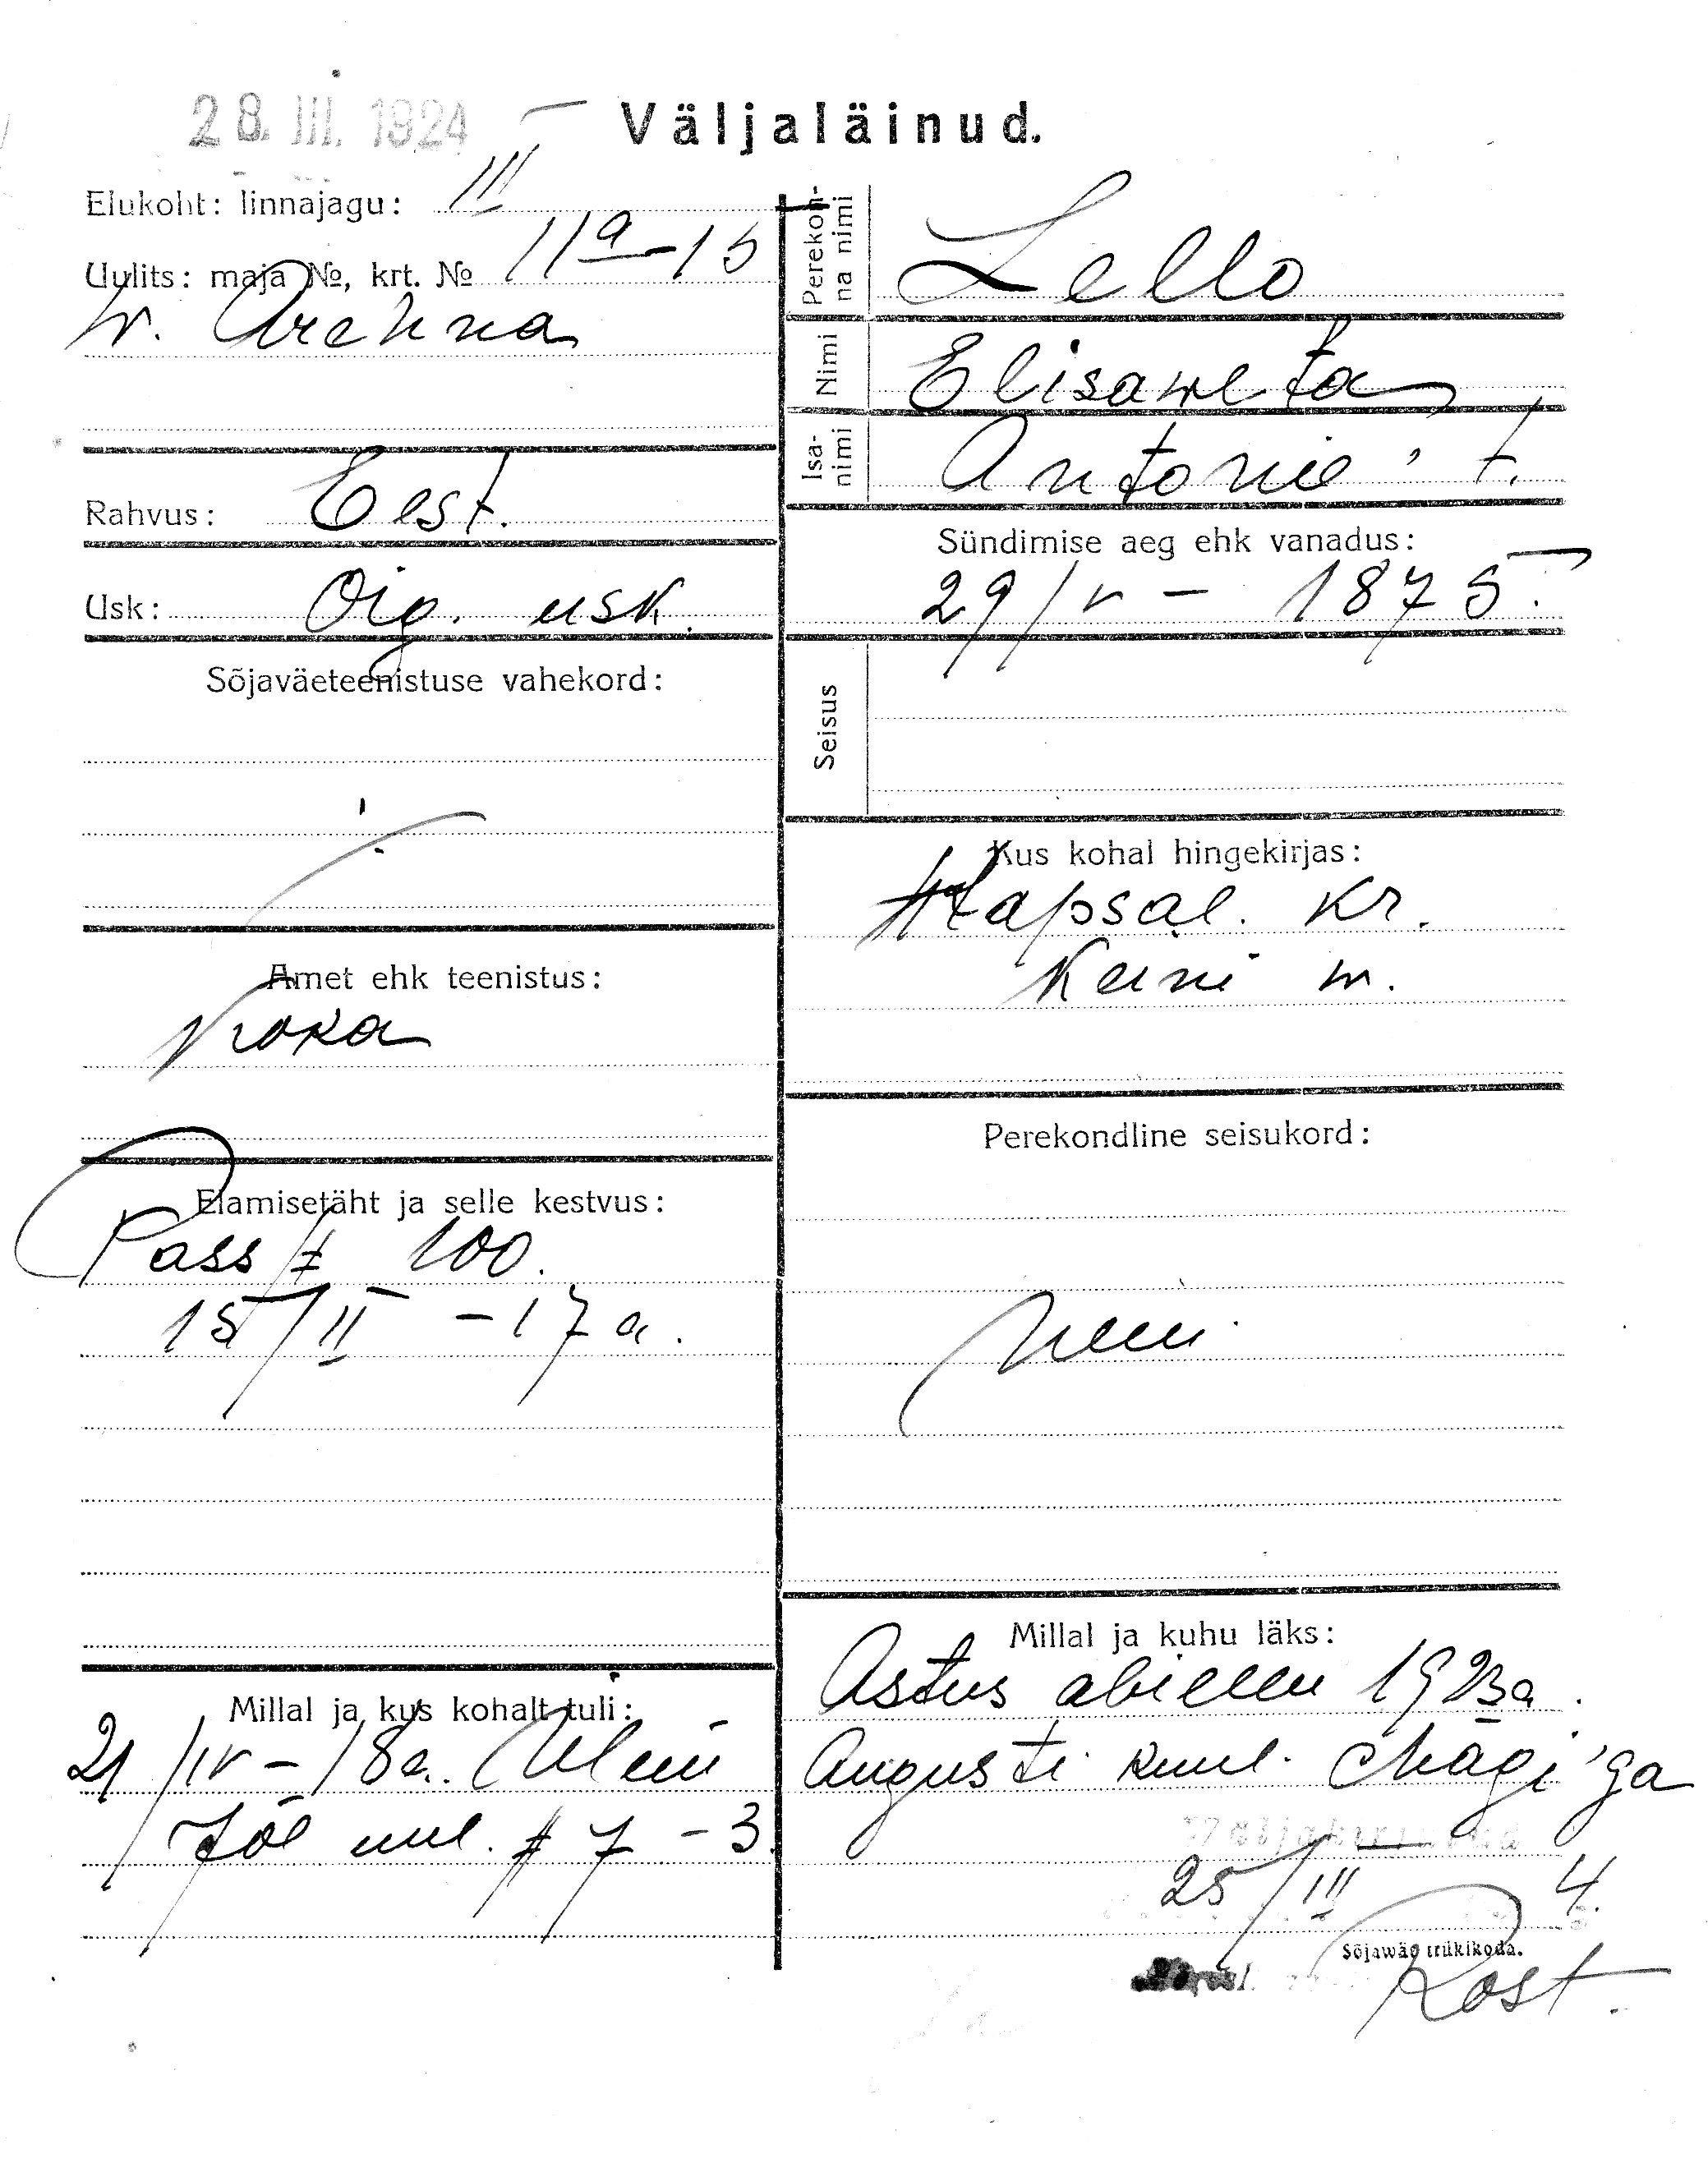 28. III. 1924
Väljaläinud.
Elukoht: linnajagu: III
Uulits: maja №, krt. № 11a-15
W. Arehna
Rahvus: Eest.
Usk: Õig. usk.
Sõjaväeteenistuse vahekord:
Amet ehk teenistus:
Koka
Elamisetäht ja selle kestvus:
Pass # 100.
15/II - 17 a.
Millal ja kus kohalt tuli:
21/IV - 18 a.
Jõe uul. # 7 - 3.
Perekon-
na nimi
Lello
Nimi
Elisaweta
Isa-
nimi
Antoni t.
Sündimise aeg ehk vanadus:
29/V - 1875.
Seisus
Kus kohal hingekirjas:
Hapsal. Kr.
Keini w.
Perekondline seisukord:
Neiu
Millal ja kuhu läks:
Astus abiellu 1923 a.
Augusti kuul. Mägi'ga
25/III 4.
Sõjawäe trükikoda.
Kost.